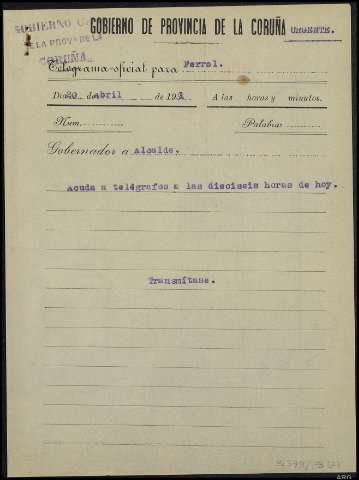 GOBIERNO C
DE LA PROV DE LA
CORUÑA
GOBIERNO DE PROVINCIA DE LA CORUÑA URGENTE.
Telegrama-oficial para Ferrol.
Día 20 de abril de 1931 A las horas y minutos.
Núm. Palabras
Gobernador a Alcalde.
Acuda a telégrafos a las dieciseis horas de hoy.
Transmítase.